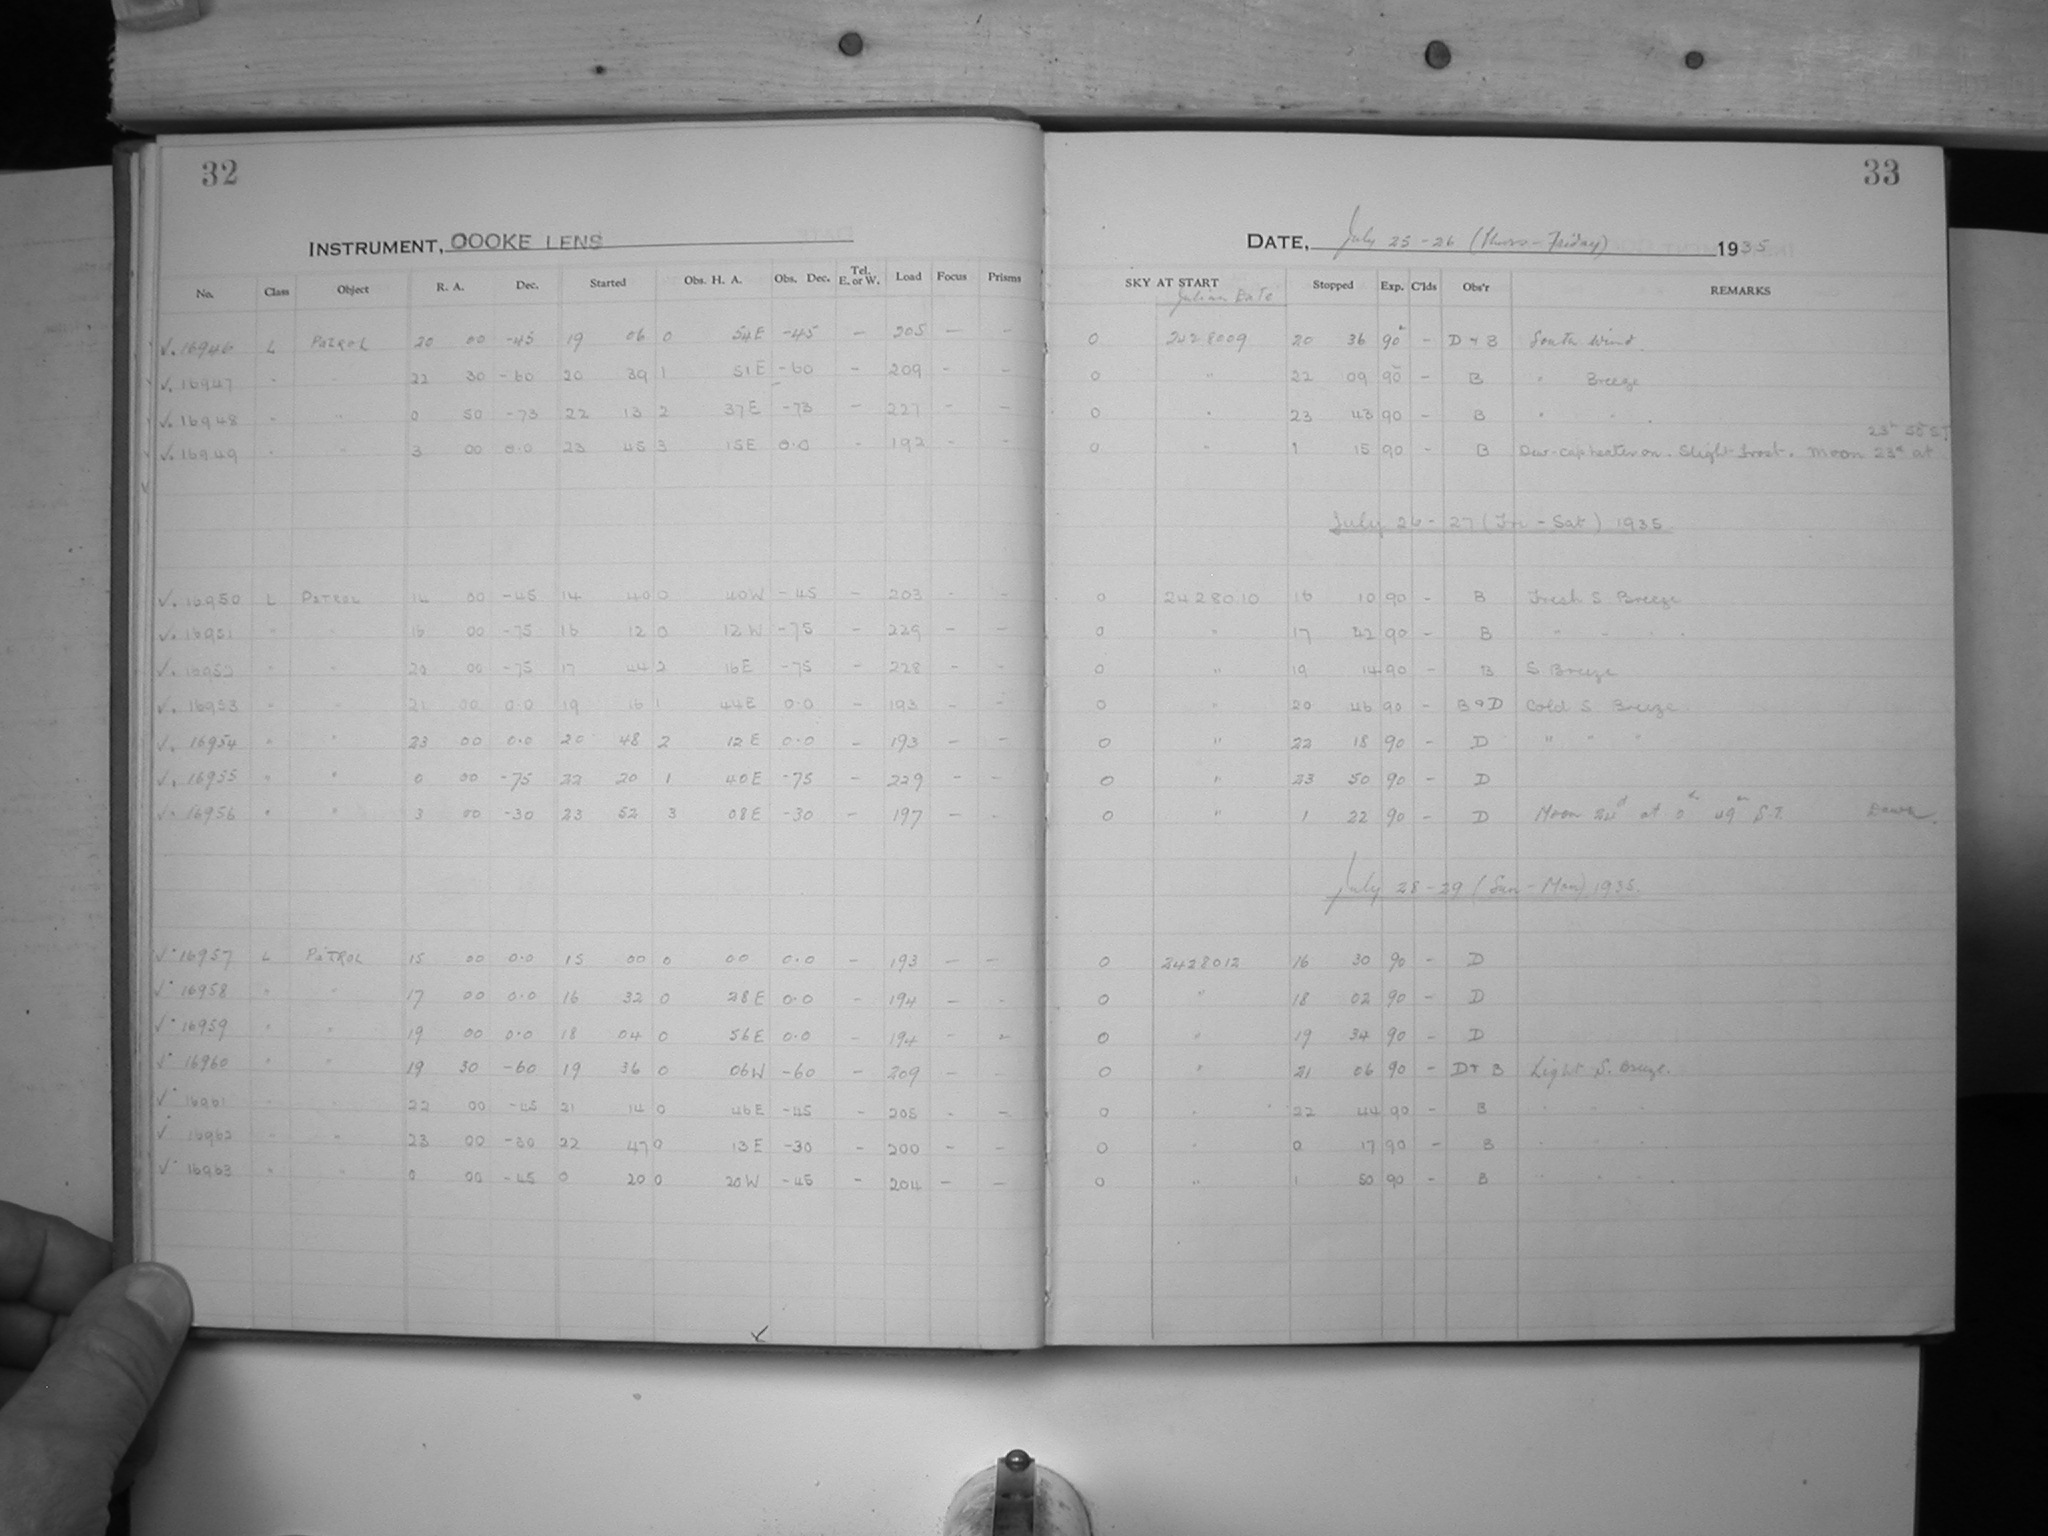 32
INSTRUMENT, COOKE LENS
No. Class Object R. A. Dec. Started Obs. H. A. Obs. Dec. Tel. E. or W. Load Focus Prisms
√. 16946 L PATROL 20 00 -45 19 06 0 54E -45 - 205 - -
√. 16947 " " 22 30 -60 20 39 1 51E -60 - 209 - -
√. 16948 " " 0 50 -73 22 13 2 37E -73 - 227 - -
√. 16949 " " 3 00 0.0 23 45 3 15E 0.0 - 192 - -
√. 16950 L PATROL 14 00 -45 14 40 0 40W -45 - 203 - -
√. 16951 " " 16 00 -75 16 12 0 12W -75 - 229 - -
√. 16952 " " 20 00 -75 17 44 2 16E -75 - 228 - -
√. 16953 " " 21 00 0.0 19 16 1 44E 0.0 - 193 - -
√. 16954 " " 23 00 0.0 20 48 2 12E 0.0 - 193 - -
√. 16955 " " 0 00 -75 22 20 1 40E -75 - 229 - -
√. 16956 " " 3 00 -30 23 52 3 08E -30 - 197 - -
√. 16957 L PATROL 15 00 0.0 15 00 0 00 0.0 - 193 - -
√. 16958 " " 17 00 0.0 16 32 0 28E 0.0 - 194 - -
√. 16959 " " 19 00 0.0 18 04 0 56E 0.0 - 194 - -
√. 16960 " " 19 30 -60 19 36 0 06W -60 - 209 - -
√. 16961 " " 22 00 -45 21 14 0 46E -45 - 205 - -
√. 16962 " " 23 00 -30 22 47 0 13E -30 - 200 - -
√. 16963 " " 0 00 -45 0 20 0 20W -45 - 204 - -
33
DATE, July 25-26 (Thurs-Friday) 1935
SKY AT START Stopped Exp. C'lds Obs'r REMARKS
Julian Date
0 2428009 20 36 90m - D + B South Wind.
0 " 22 09 90 - B " Breeze
0 " 23 43 90 - B " "
0 " 1 15 90 - B Dew-cap heater on. Slight frost. Moon 23d at
July 26-27 (Fri - Sat) 1935.
0 2428010 16 10 90 - B Fresh S Breeze
0 " 17 42 90 - B " " "
0 " 19 14 90 - B S Breeze
0 " 20 46 90 - B + D Cold S Breeze.
0 " 22 18 90 - D " " "
0 " 23 50 90 - D
0 " 1 22 90 - D Moon 24d at 0h 49m S.T. Dawn.
July 28-29 (Sun - Mon) 1935.
0 2428012 16 30 90 - D
0 " 18 02 90 - D
0 " 19 34 90 - D
0 " 21 06 90 - D + B Light S. Breeze.
0 " 22 44 90 - B " " "
0 " 0 17 90 - B " " "
0 " 1 50 90 - B " " "